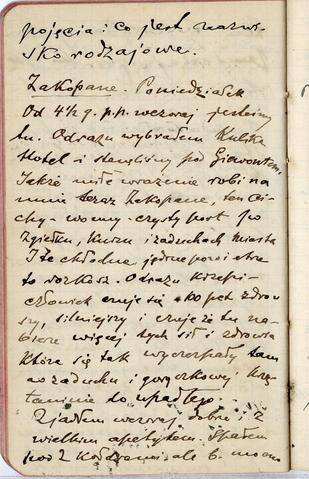 pojęcia i co jest nazwi-
sko rodzajowe.
Zakopane. Poniedziałek
Od 4½ g. p.p. wczoraj jesteśmy
tu. Odrazu wybrałem
Hotel i stanęliśmy pod Giewontem.
Jakże miłe wrażenie robi na
mnie teraz Zakopane, ten ci-
chy - wonny - czysty port po
zgiełku, kurzu i zaduchach miasta
I te chłodne jedne powietrze
to rozkosz. Odrazu
człowiek czuje się o ko pet zdrow
szy, silniejszy i czuje że tu na-
bierze więcej tych sił i zdrowia
które się tak wyczerpały tam
w zaduchu i gorączkowej
do upadłego.
Zjadłem wczoraj dobrze i z
wielkim apetytem. Spałem
pod 2 kołdrami ale b. mocno